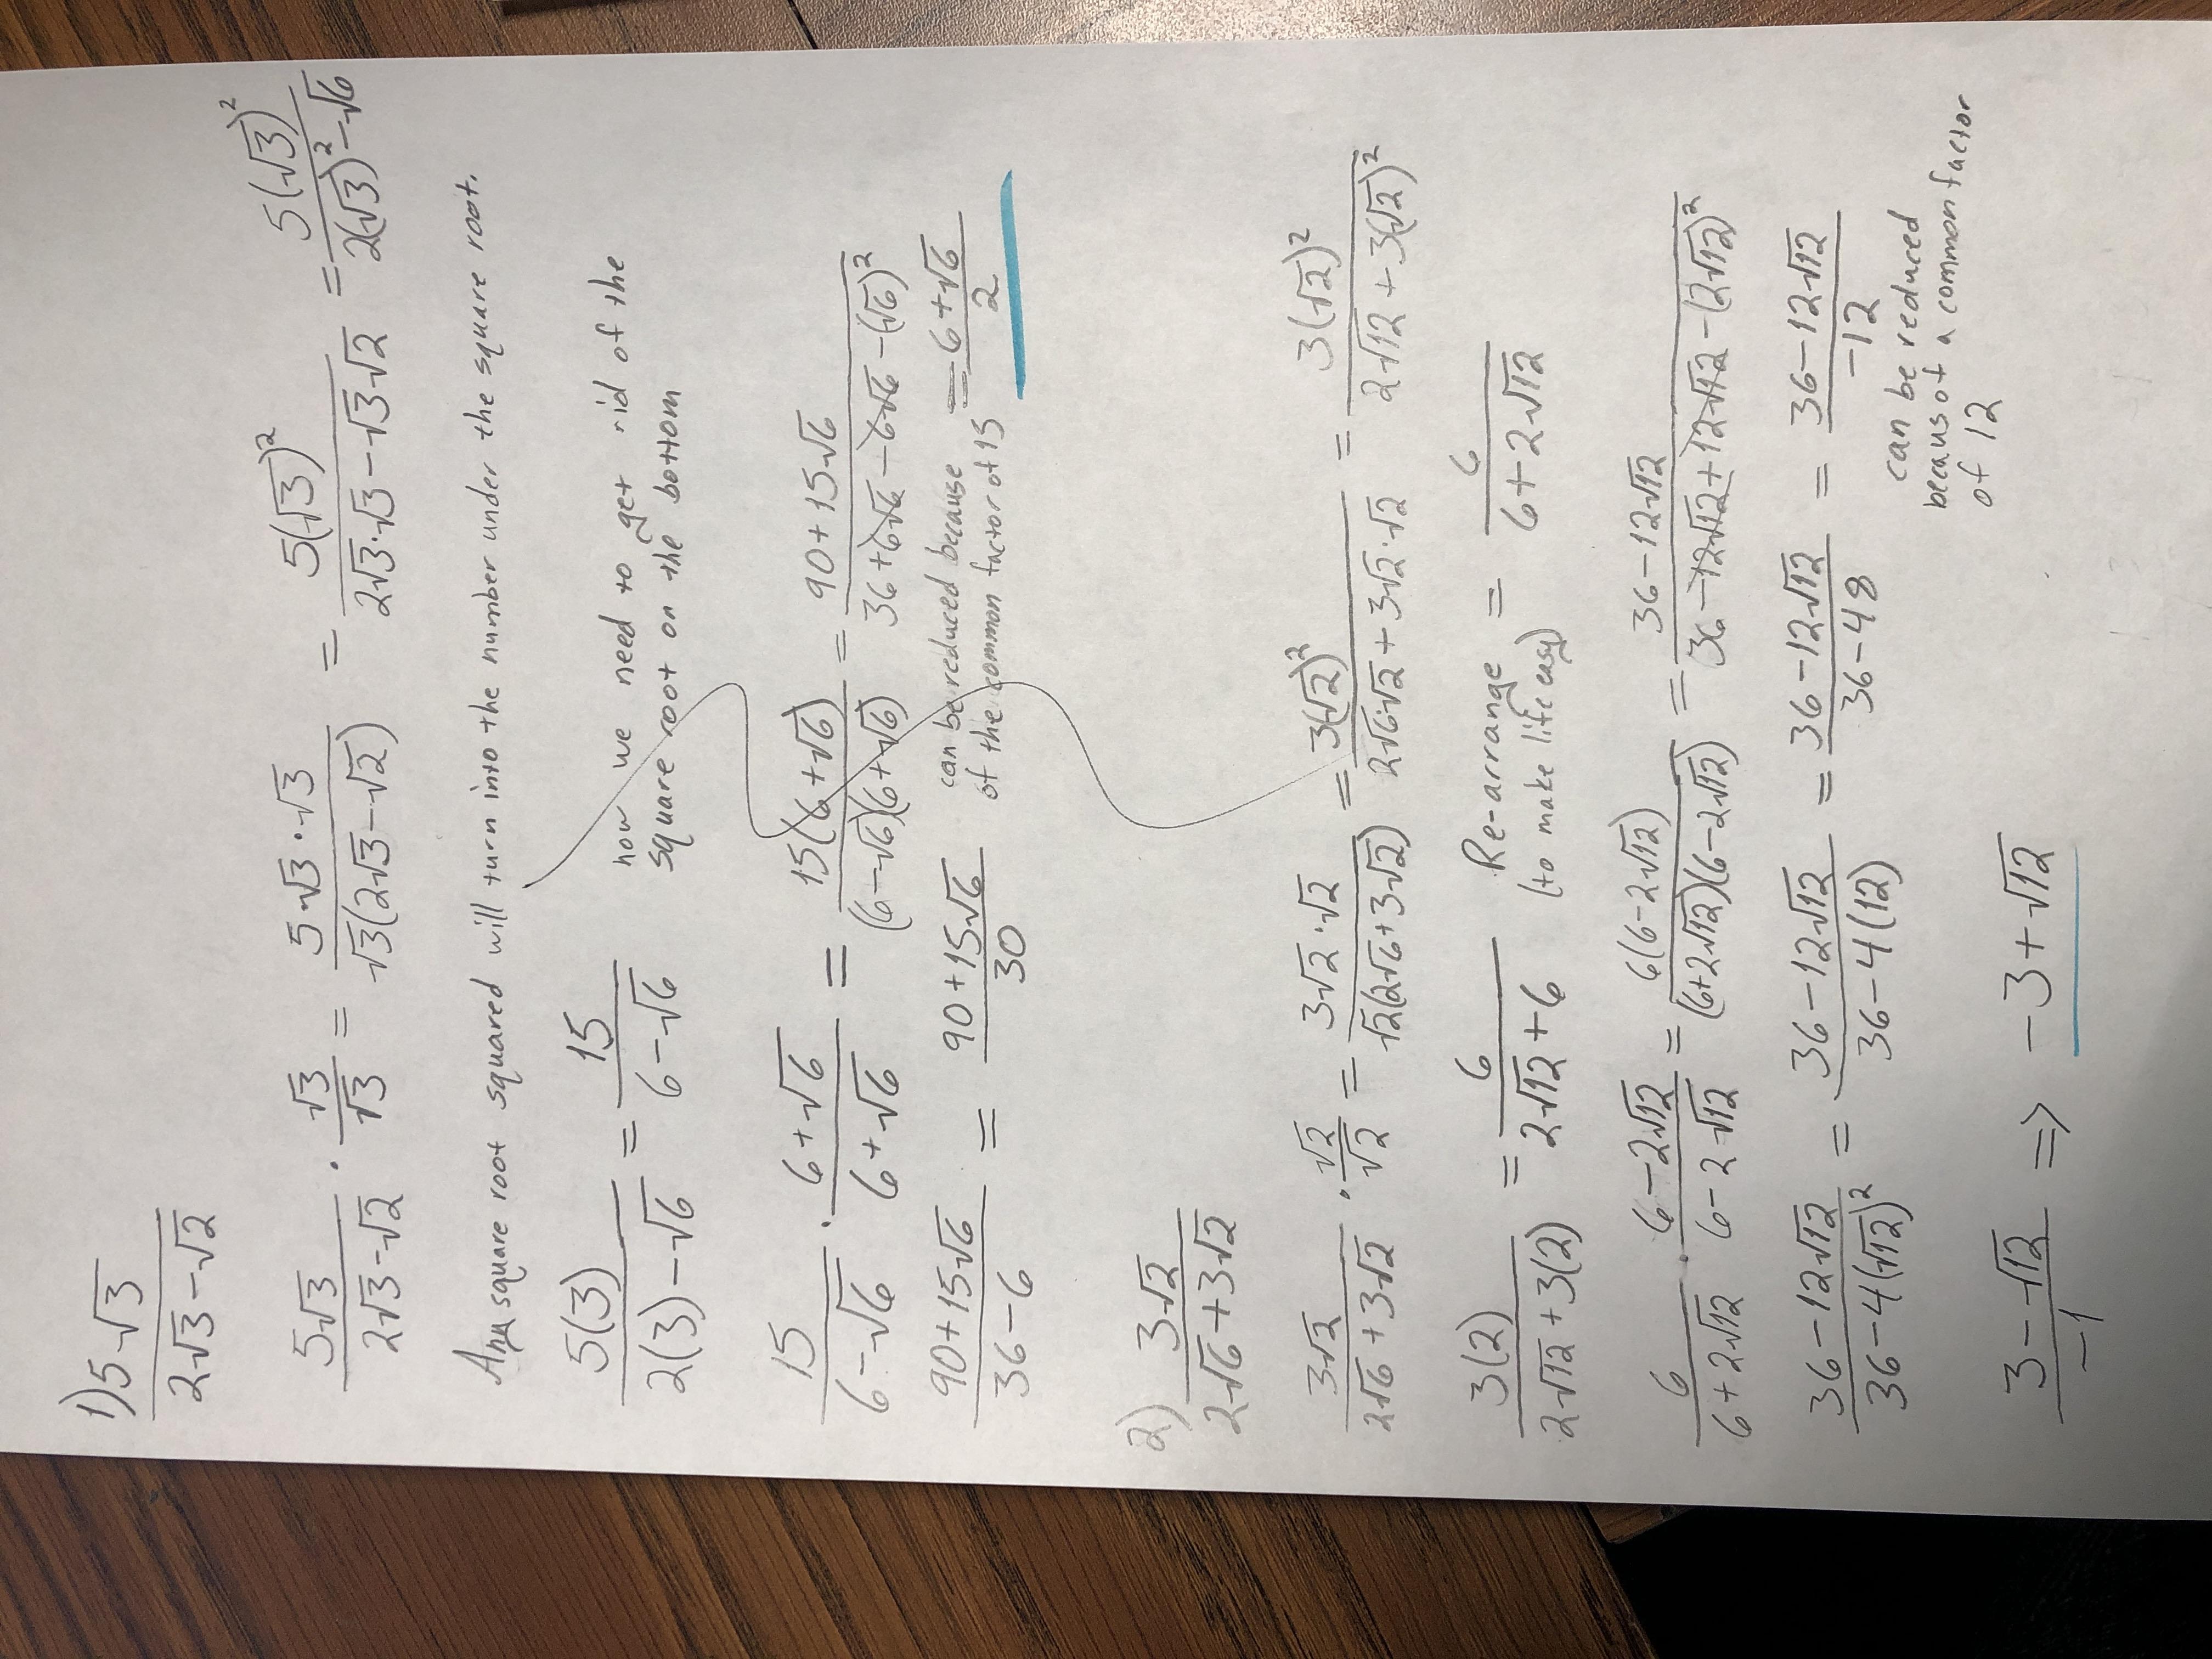 1) 5√3 / (2√3 − √2)
5√3 / (2√3 − √2) · √3/√3 = 5√3 · √3 / √3(2√3 − √2) = 5(√3)² / (2√3·√3 − √3√2) = 5(√3)² / (2(√3)² − √6)
Any square root squared will turn into the number under the square root.
5(3) / (2(3) − √6) = 15 / (6 − √6)
now we need to get rid of the
square root on the bottom
15 / (6 − √6) · (6 + √6) / (6 + √6) = 15(6 + √6) / (6 − √6)(6 + √6) = (90 + 15√6) / (36 + 6√6 − 6√6 − (√6)²)
(90 + 15√6) / (36 − 6) = (90 + 15√6) / 30
can be reduced because
of the common factor of 15
= (6 + √6) / 2
2) 3√2 / (2√6 + 3√2)
3√2 / (2√6 + 3√2) · √2/√2 = 3√2 · √2 / √2(2√6 + 3√2) = 3(√2)² / (2√6·√2 + 3√2·√2) = 3(√2)² / (2√12 + 3(√2)²)
3(2) / (2√12 + 3(2)) = 6 / (2√12 + 6)
Re-arrange
(to make life easy)
= 6 / (6 + 2√12)
6 / (6 + 2√12) · (6 − 2√12) / (6 − 2√12) = 6(6 − 2√12) / (6 + 2√12)(6 − 2√12) = (36 − 12√12) / (36 − 12√12 + 12√12 − (2√12)²)
(36 − 12√12) / (36 − 4(√12)²) = (36 − 12√12) / (36 − 4(12)) = (36 − 12√12) / (36 − 48) = (36 − 12√12) / −12
can be reduced
becaus of a common factor
of 12
(3 − √12) / −1 ⇒ −3 + √12